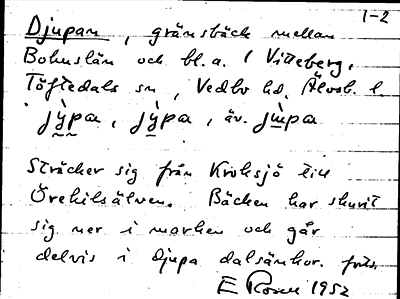 1-2
Djupan, gränsbäck mellan
Bohuslän och bl.a. l Vitteberg,
Töftedals sn, Vedbo hd, Älvsb. l.
jỳpa, jỳpa, äv. jɯpa
Sträcker sig från Kroksjö till
Örekilsälven. Bäcken har skurit
sig ner i marken och går
delvis i djupa dalsänkor. forts.
E Rosen 1952